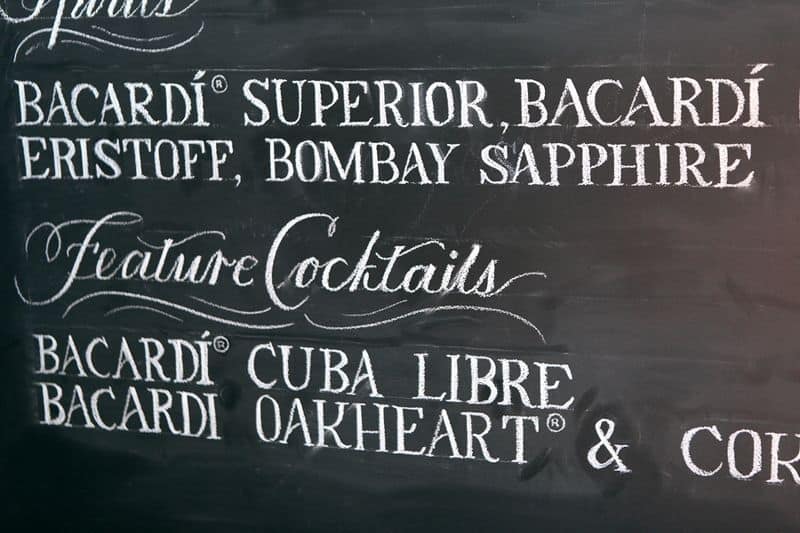 Spirits
BACARDÍ® SUPERIOR, BACARDÍ
ERISTOFF, BOMBAY SAPPHIRE
Feature Cocktails
BACARDÍ® CUBA LIBRE
BACARDI OAKHEART® &